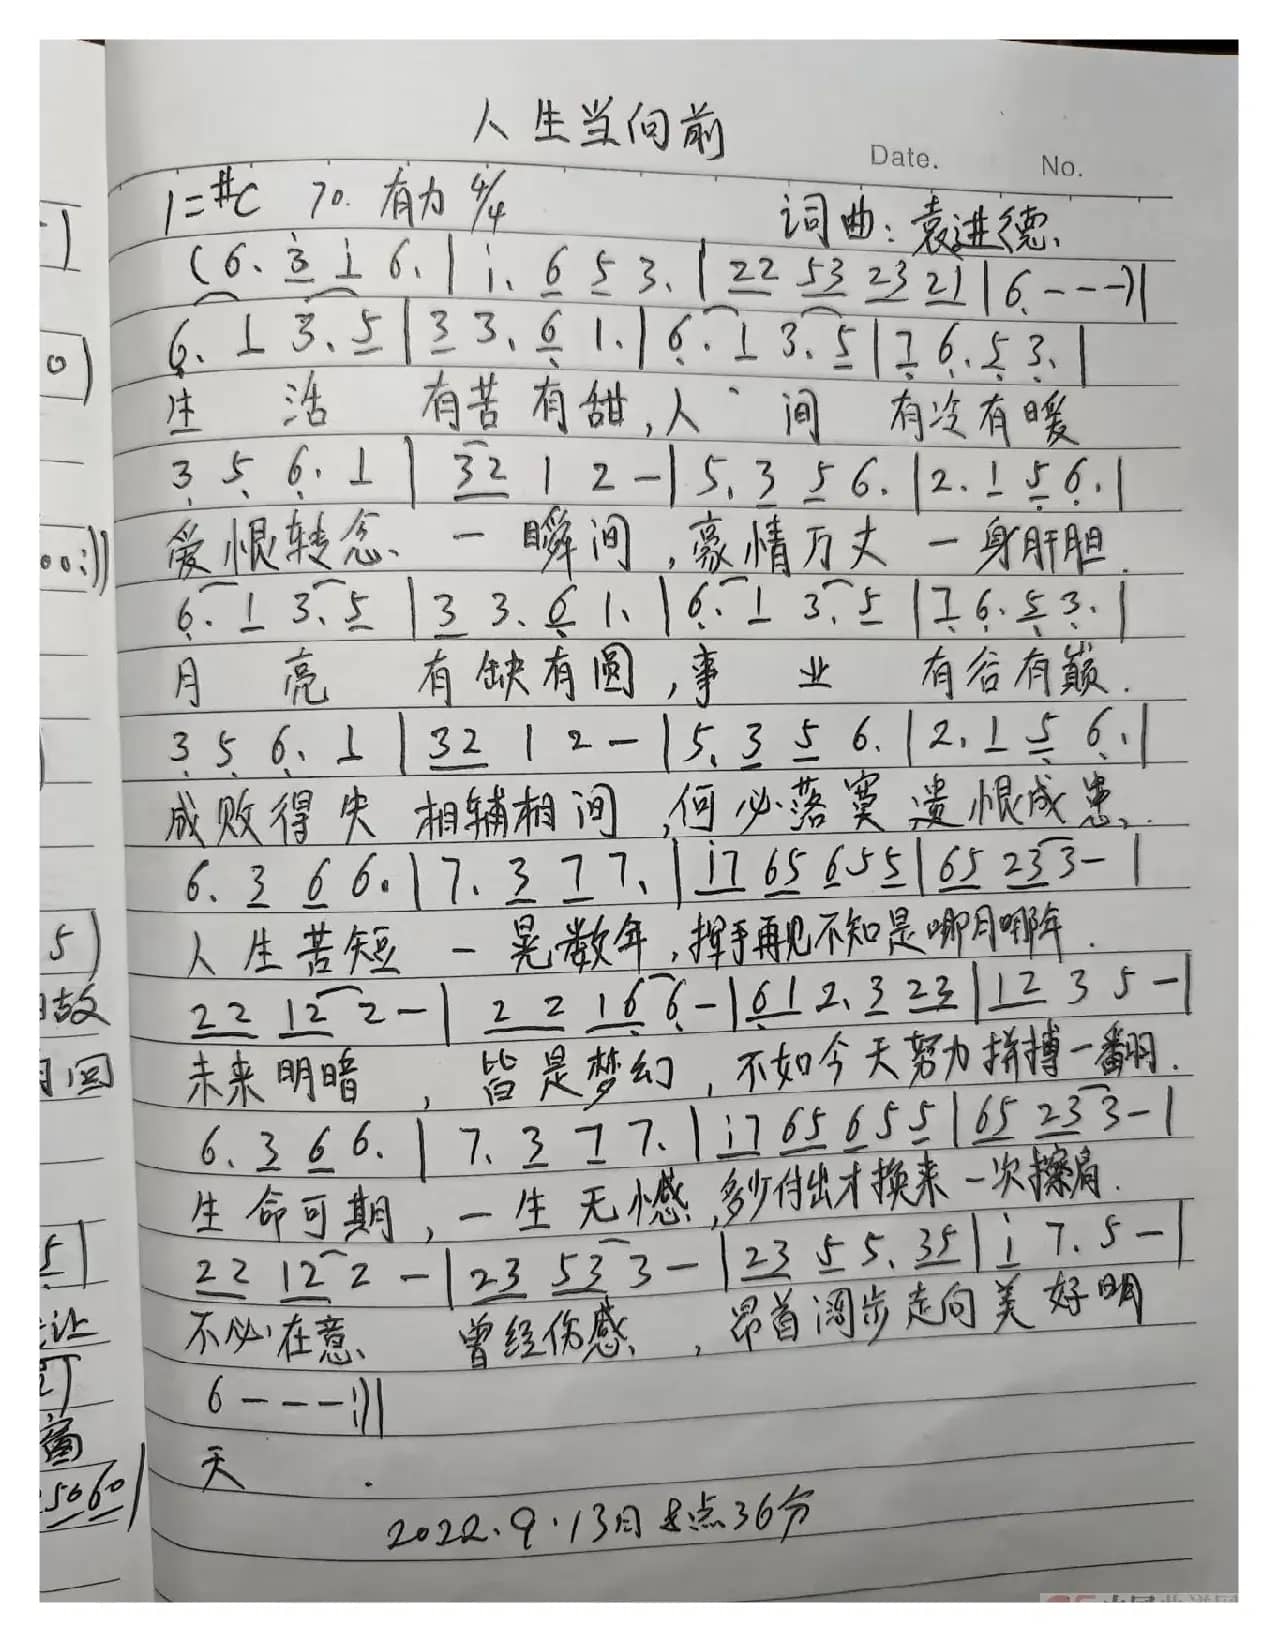 人生当向前
Date. No.
1=#C 70. 有力 4/4 词曲:袁进德.
(6. 3 i 6. | i. 6 5 3. | 22 53 23 21 | 6 - - -) |
6. 1 3. 5 | 3 3. 6 1. | 6. 1 3. 5 | 7 6. 5 3. |
生 活 有苦有甜,人 间 有冷有暖
3 5 6. 1 | 32 1 2 - | 5. 3 5 6. | 2. 1 5 6. |
爱恨转念、一瞬间,豪情万丈 一身肝胆.
6. 1 3. 5 | 3 3. 6 1. | 6. 1 3. 5 | 7 6. 5 3. |
月 亮 有缺有圆,事 业 有谷有巅.
3 5 6. 1 | 32 1 2 - | 5. 3 5 6. | 2. 1 5 6. |
成败得失 相辅相间,何必落寞 遗恨成患.
6. 3 6 6. | 7. 3 7 7. | i7 65 655 | 65 233 - |
人生苦短 一晃数年,挥手再见不知是哪月哪年.
22 12 2 - | 22 16 6 - | 61 2. 3 23 | 12 3 5 - |
未来明暗,皆是梦幻,不如今天努力拼搏一翻.
6. 3 6 6. | 7. 3 7 7. | i7 65 655 | 65 233 - |
生命可期,一生无憾,多少付出才换来一次擦肩.
22 12 2 - | 23 53 3 - | 23 5 5. 35 | i 7. 5 - |
不必在意、曾经伤感、,昂首阔步走向美好明
6 - - - :||
天.
2022.9.13日 点36分